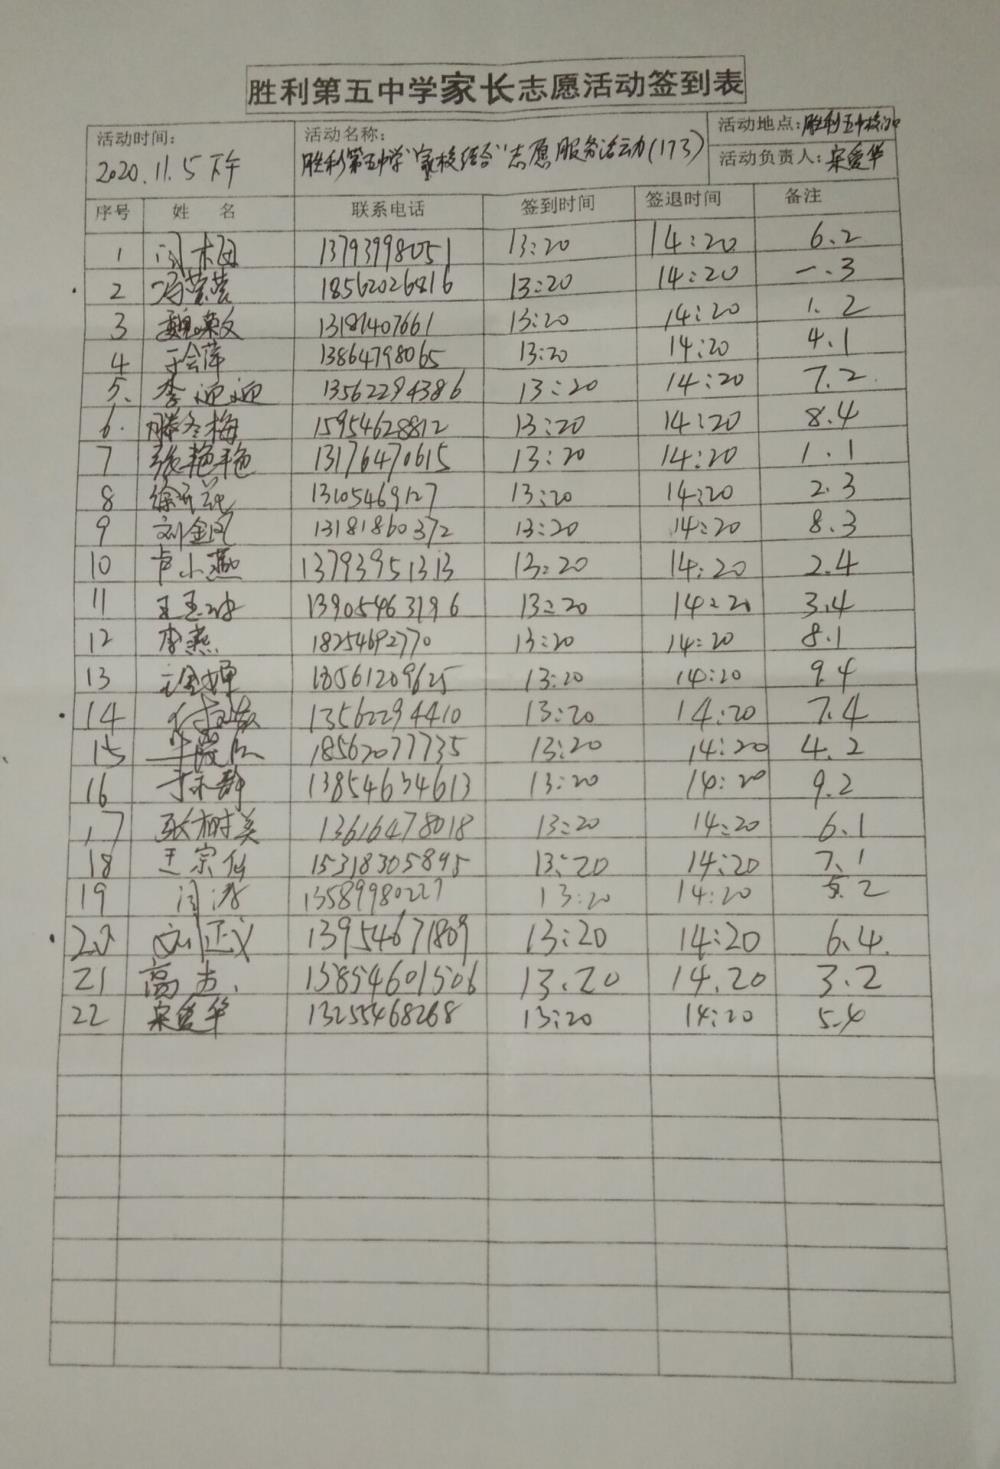 胜利第五中学家长志愿活动签到表
活动时间: 2020.11.5下午
活动名称: 胜利第五中学"家校结合"志愿服务活动(173)
活动地点:胜利五中校门口
活动负责人:宋爱华
序号 姓名 联系电话 签到时间 签退时间 备注
1 闫 13793998051 13:20 14:20 6.2
2 冯莹莹 18562026816 13:20 14:20 一.3
3 魏 13181407661 13:20 14:20 1.2
4 于会萍 13864798065 13:20 14:20 4.1
5. 李迎迎 13562294386 13:20 14:20 7.2
6. 滕冬梅 15954628812 13:20 14:20 8.4
7 张艳艳 13176470615 13:20 14:20 1.1
8 徐 13105469127 13:20 14:20 2.3
9 刘金凤 13181860372 13:20 14:20 8.3
10 卢小燕 13793951313 13:20 14:20 2.4
11 王玉冰 13905463196 13:20 14:20 3.4
12 李燕 18254692770 13:20 14:20 8.1
13 18561209625 13:20 14:20 9.4
14 13562294410 13:20 14:20 7.4
15 18562077735 13:20 14:20 4.2
16 于 静 13854634613 13:20 14:20 9.2
17 张树美 13616478018 13:20 14:20 6.1
18 王宗 15318305895 13:20 14:20 7.1
19 闫涛 13589980227 13:20 14:20 5.2
20 刘正义 13954671809 13:20 14:20 6.4
21 高 13854601506 13.20 14.20 3.2
22 宋爱华 13255468268 13:20 14:20 5.4